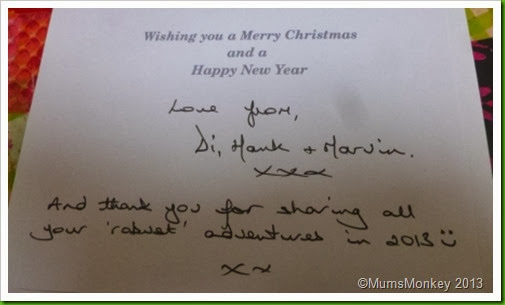 Wishing you a Merry Christmas
and a
Happy New Year
Love from,
Di, Hank + Marvin.
xxx
And thank you for sharing all
your 'robust' adventures in 2013
xx
©MumsMonkey 2013